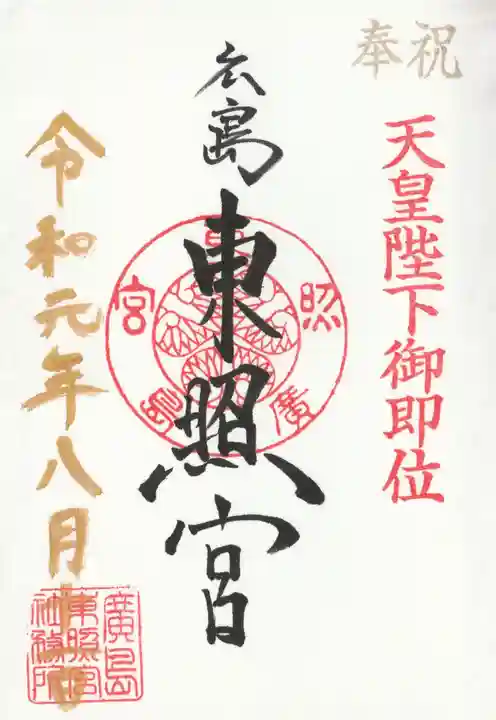 奉祝
天皇陛下御即位
広島
東照宮
廣島東照宮
令和元年八月
廣島
東照宮
社務所